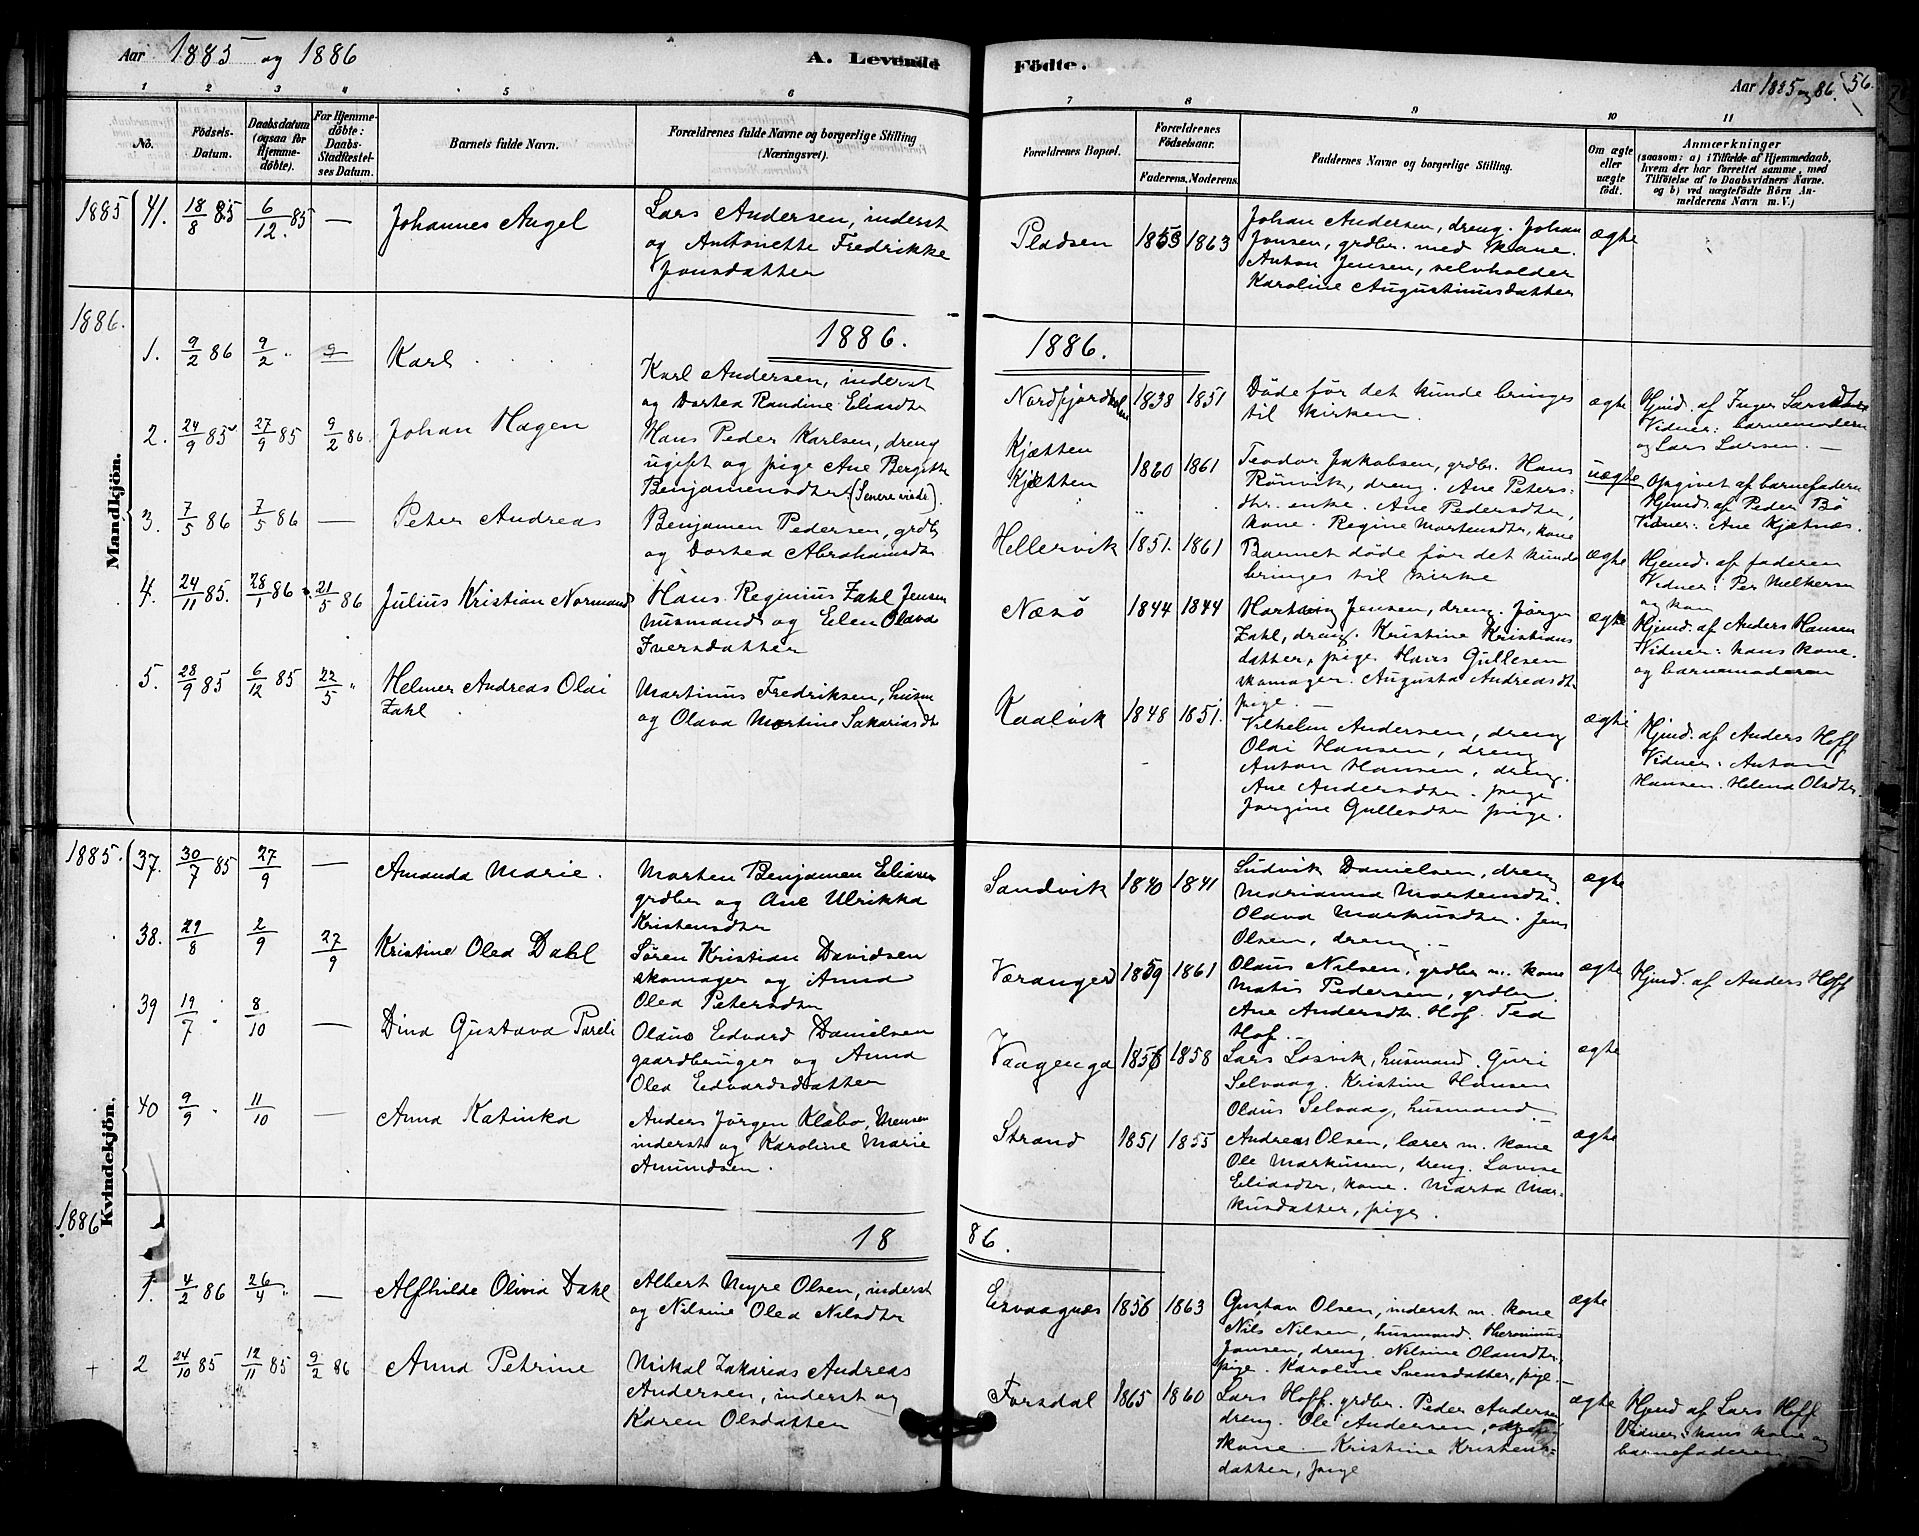 Aar 1885 og 1886
A. Levende Fødte.
Aar 1885 og 86. 56.
1 2 3 4 5 6 7 8 9 10 11
No.
Födsels-Datum.
Daabsdatum (ogsaa for Hjemme-döbte).
For Hjemme-döbte: Daabs-Stadfæstel-ses Datum.
Barnets fulde Navn.
Forældrenes fulde Navne og borgerlige Stilling (Næringsvei).
Forældrenes Bopæl.
Forældrenes Födselsaar.
Faderens. Moderens.
Faddernes Navne og borgerlige Stilling.
Om ægte eller uægte födt.
Anmærkninger
(saasom: a) i Tilfælde af Hjemmedaab, hvem der har forrettet samme, med Tilföielse af to Daabsvidners Navne. og b) ved uægtefödte Börn An-melderens Navn m. V.)
Mandkjön.
1885 41. 18/8 85 6/12 85 — Johannes Angel
Lars Andersen, inderst
og Antonette Fredrikke
Jonsdatter
Pladsen 1853 1863
Johan Andersen, dreng. Johan
Jonsen, grdbr. med kone.
Anton Jensen, selvholder
Karoline Augustinusdatter
ægte
1886. 1886. 1886.
1. 9/2 86 9/2 " Karl
Karl Andersen, inderst
og Dortea Randine Eliasdtr
Nordfjordholm 1838 1851
Døde før det kunde bringes
til kirken.
ægte
Hjmd. af Inger Larsdtr
Vidner: barnemoderen
og Lars Larsen. —
2. 24/9 85 27/9 85 9/2 86. Johan Hagen
Hans Peder Karlsen, dreng
ugift og pige Ane Bergitte
Benjamensdtr (Senere viede).
Kjætten
Kjætten 1860 1861
Teodor Jakobsen, grdbr. Hans
Rönvik, dreng. Ane Peters-
dtr. enke. Ane Pedersdtr,
kone. Regine Mortensdtr, kone
uægte
Opgivet af barnefaderen
Hjemd. af Peder Bö
Vidner: Ane Kjætnæs.
3. 7/5 86 7/5 86 — Peter Andreas
Benjamen Pedersen, grdb
og Dortea Abrahamsdtr
Hellervik 1851. 1861
Barnet døde før det kunde
bringes til kirke
ægte
Hjemd. af faderen
Vidner: Per Melkersen
og kone
4. 24/11 85. 28/1 86 21/5 86 Julius Kristian Normand
Hans Reginius Zahl Jensen
husmand og Elen Olava
Iversdatter
Næsö 1844 1844
Hartvig Jensen, dreng. Jørgen
Zahl, dreng. Kristine Kristians
datter, pige. Hans Gullesen
skomager. Augusta Andreasdtr
pige. —
ægte
Hjemd. af Anders Hansen
Vidner: hans kone.
og barnemoderen
5. 28/9 85 6/12 85 22/5 " Helmer Andreas Olai
Zahl
Martinus Fredriksen, husm
og Olava Martine Sakariasdtr
Kaalvik 1848 1851.
Vilhelm Andersen, dreng
Olai Hansen, dreng
Anton Hansen, dreng.
Ane Andersdtr. pige
Jørgine Gullesdtr pige.
ægte
Hjemd. af Anders Hoff
Vidner: Anton
Hansen. Helena Olsdtr.
Kvindekjön.
1885. 37. 30/7 85 27/9 — Amanda Marie.
Morten Benjamen Eliasen
grdbr og Ane Ulrikka
Kristensdtr
Sandvik 1840 1841
Ludvik Danielsen, dreng
Marianna Mortensdtr.
Olava Markusdtr. Jens
Olsen, dreng. —
ægte
38. 29/8 2/9 27/9 Kristine Olea Dahl
Søren Kristian Davidsen
skomager og Anna
Olea Petersdtr
Væranger 1859 1861
Olaus Nilsen, grdbr m. kone
Matis Pedersen, grdbr.
Ane Andersdtr. Hof. Tea
Hof.
ægte
Hjemd. af Anders Hoff
39 19/7 8/10 — Dina Gustava Pareli
Olaus Edvard Danielsen
gaardbruger og Anna
Olea Edvardsdatter
Vaagenga 1856 1858
Lars Løsvik, husmand. Guri
Selvaag. Kristine Hansen
Olaus Selvaag, husmand.
ægte
40 9/9 11/10 — Anna Katinka
Anders Jørgen Klæbo,
inderst og Karoline Marie
Amundsen.
Strand 1851 1855
Andreas Olsen, lærer m. kone
Ole Markussen, dreng. Lovise
Eliasdtr, kone. Marta Mar-
kusdatter, pige.
ægte
1886 1886.
1. 4/2 86 26/4 " — Alfhilde Olivia Dahl
Albert Myre Olsen, inderst
og Nilsine Olea Nilsdtr
Ervaagnæs 1856 1863
Gustav Olsen, inderst m. kone
Nils Nilsen, husmand. Hieronimus
Jansen, dreng. Nilsine Olausdtr.
pige. Karoline Svensdatter, pige.—
ægte
+ 2 24/10 85 12/11 85 9/2 86 Anna Petrine
Mikal Zakarias Andreas
Andersen, inderst og
Karen Olsdatter
Forsdal 1865 1860
Lars Hoff. grdbr. Peder Andersen
dreng. Ole Andersen,
kone. Kristine Kristens-
datter, pige
ægte
Hjemd af Lars Hoff
Vidner: hans kone og
barnefaderen